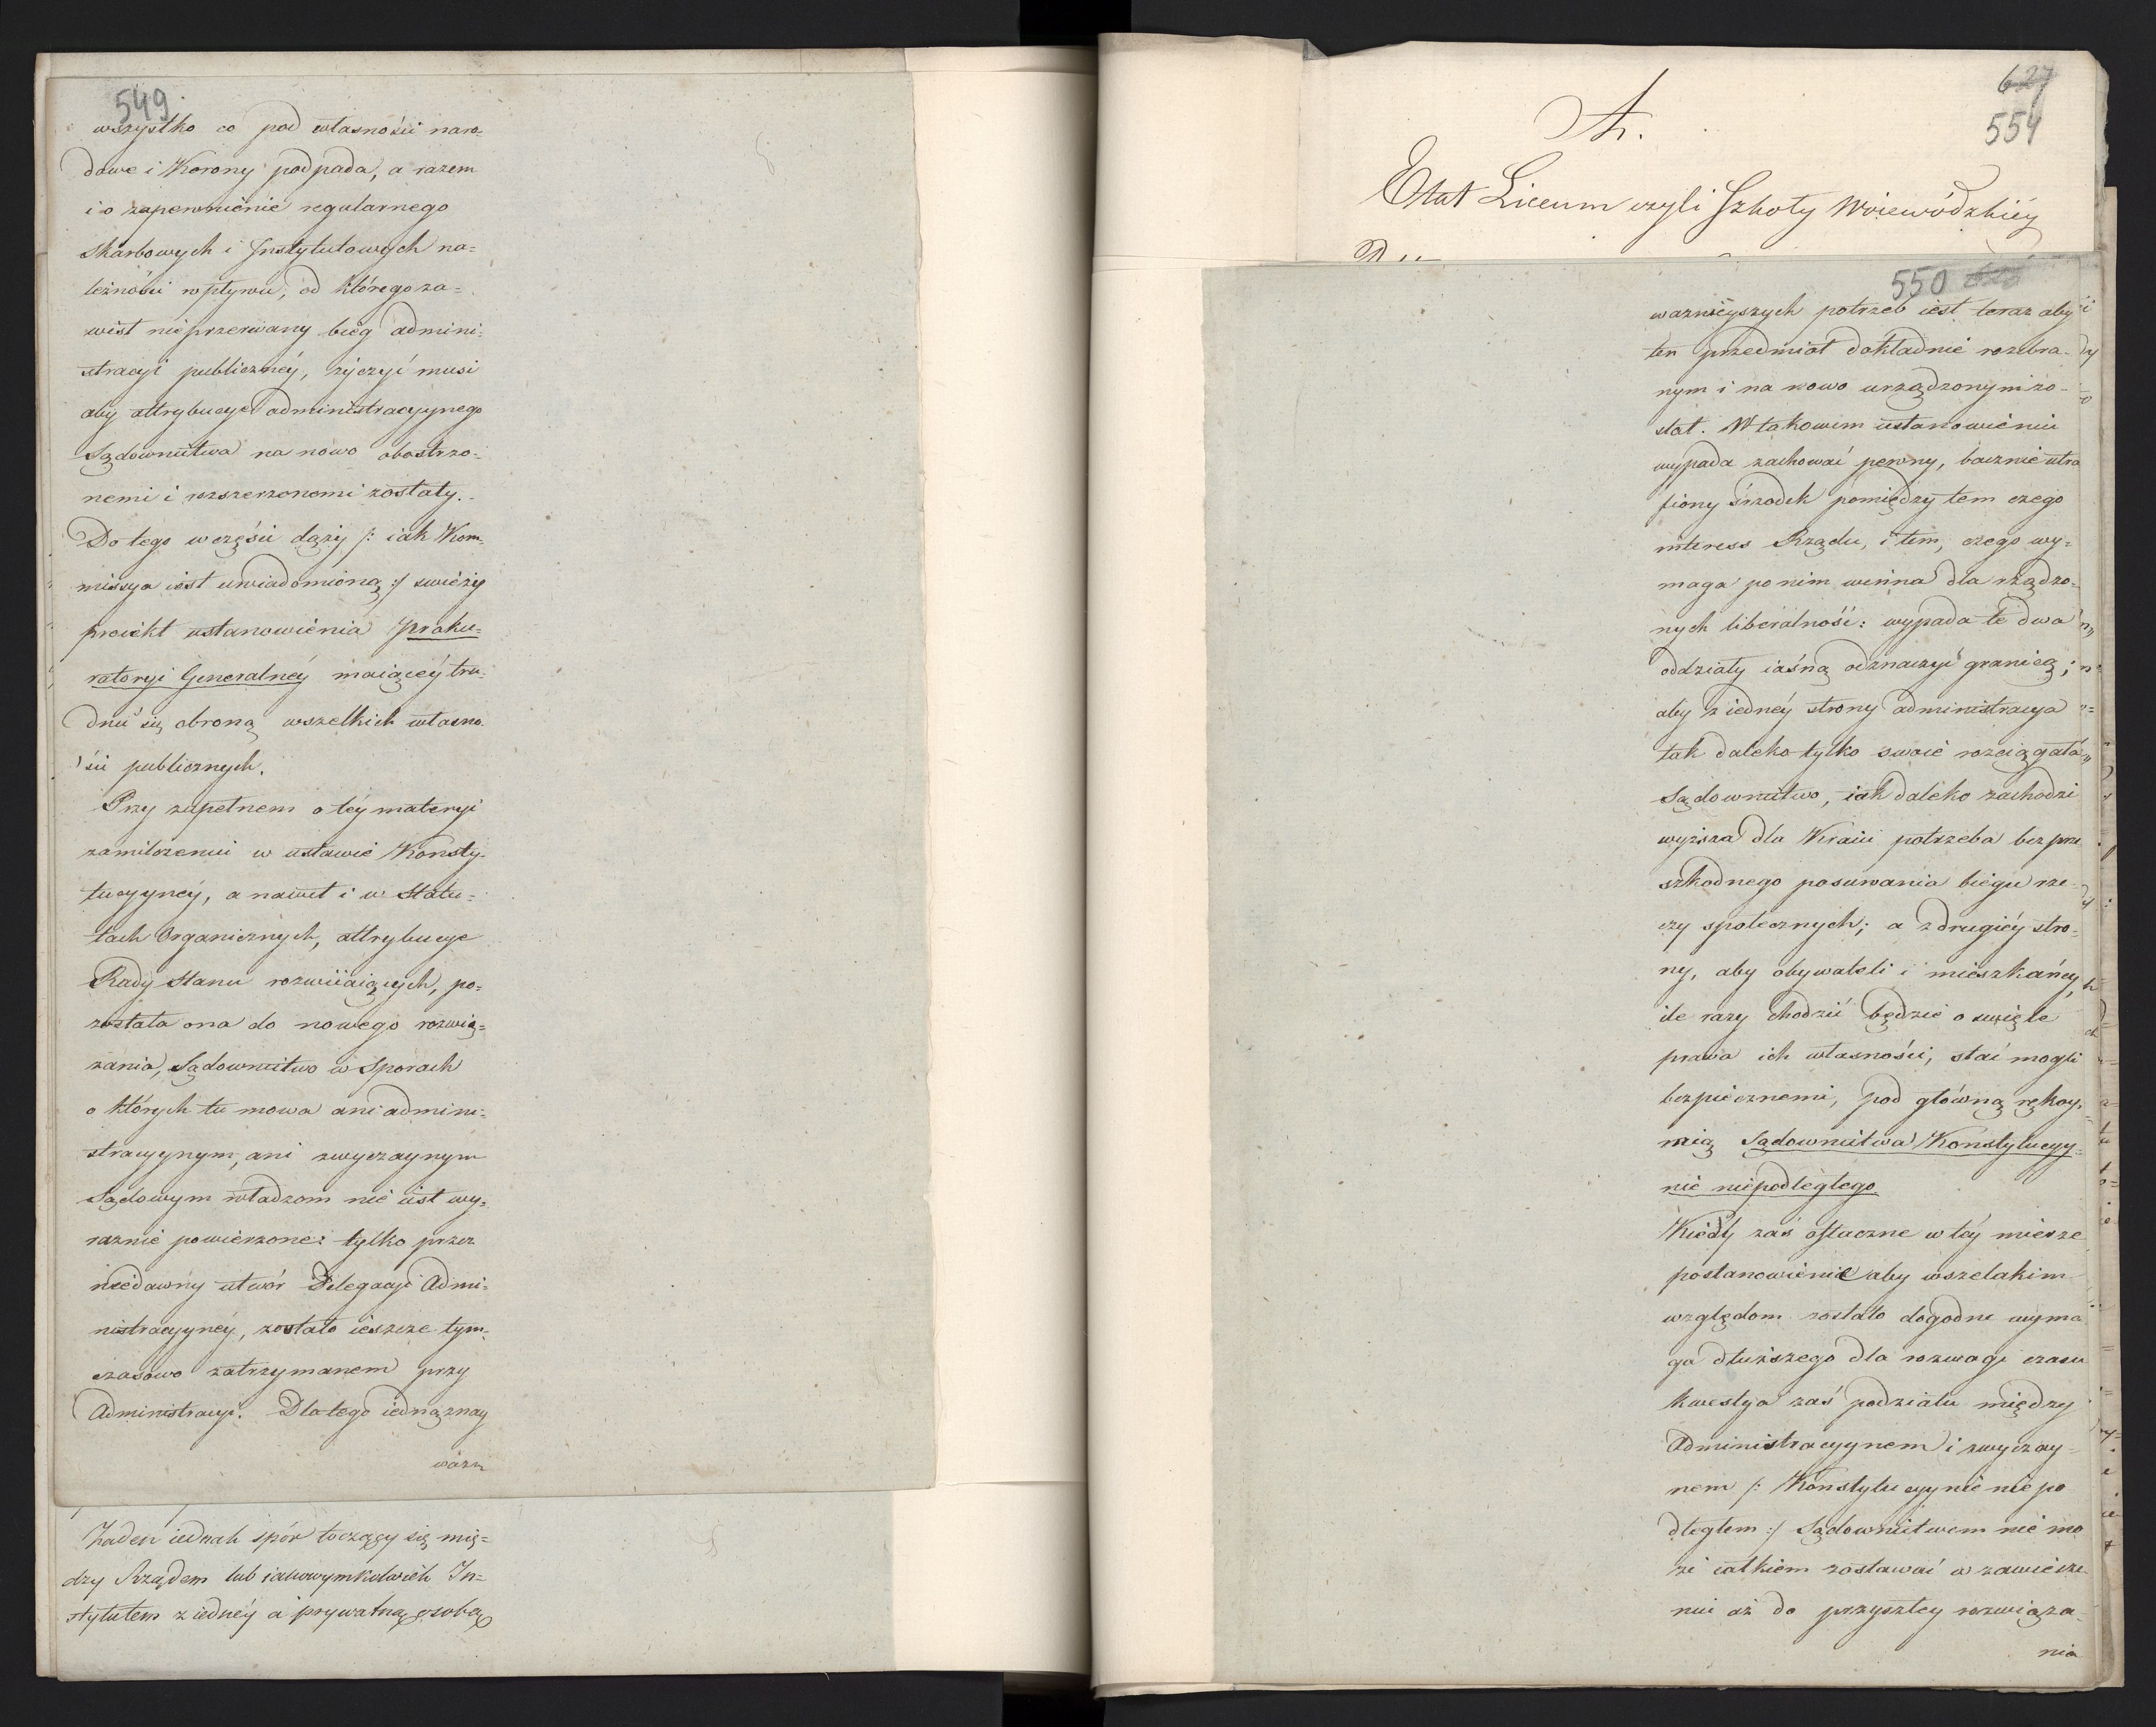 549.
wszystko co pod własności naro-
dowe i Korony podpada, a razem
i o zapewnienie regularnego
skarbowych i Instytutowych na=
leżności wpływu, od którego za=
wisł nieprzerwany bieg admini=
stracyi publiczney, życzyć musi
aby attrybucye administracyynego
Sądownictwa na nowo obostrzo=
nemi i rozszerzonemi zostały.
Do tego w części dąży /: iak Kom-
missya iest uwiadomioną :/ świeży
proiekt ustanowienia Proku=
ratoryi Generalney maiącéy tru=
dnić się obroną wszelkich własno-
ści publicznych.
Przy zupełnem o téy materyi
zamilczeniu w ustawie Konsty-
tucyyney, a nawet i w Statu=
tach Organicznych, attrybucye
Rady Stanu rozwiiaiących, po=
została ona do nowego rozwią=
zania, Sądownictwo w sporach
o których tu mowa ani admini=
stracyynym, ani zwyczaynym
Sądowym władzom nie iest wy=
raznie powierzone: tylko przez
niedawny utwór Delegacyi Admi=
nistracyynéy, zostało ieszcze tym-
czasowo zatrzymanem przy
Administracyi. Dlatego iedną z nay
ważn
Żaden iednak spór toczący się mię=
dzy Rządem lub iakowymkolwiek In=
stytutem z iednéy a prywatną osobą
627
554
A.
Etat Liceum czyli Szkoły Woiewódzkiéy
550
ważnieyszych potrzeb iest teraz aby
ten przedmiot dokładnie rozebra-
nym i na nowo urządzonym zo-
stał. W takowem ustanowieniu
wypada zachować pewny, bacznie utra
fiony śrzodek pomiędzy tem czego
interess Rządu, i tem, czego wy=
maga po nim winna dla rządzo=
nych liberalność: wypada te dwa
oddziały iasną odznaczyć granicą;
aby z iednéy strony administracya
tak daleko tylko swoie rozciągała
Sądownictwo, iak daleko zachodzi
wyższa dla Kraiu potrzeba bez prze
szkodnego posuwania biegu rze-
czy społecznych; a z drugiéy stro=
ny, aby obywateli i mieszkańcy,
ile razy chodzić będzie o święte
prawa ich własności, stać mogli
bezpiecznemi, pod główną rękoy-
mią Sądownictwa Konstytucyy-
nie niepodległego
Kiedy zaś ostaczne w téy mierze
postanowienie aby wszelakim
względom zostało dogodne wyma
ga dłuższego dla rozwagi czasu
kwestya zaś podziału między
Administracyynem i zwyczay-
nem /: Konstytucyynie niepo
dległem :/ Sądownictwem nie mo
że całkiem zostawać w zawiesze-
niu aż do przyszłey rozwiąza-
nia